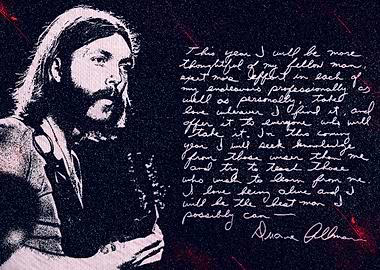 This year I will be more
thoughtful of my fellow man,
exert more effort in each of
my endeavors professionally as
well as personally, take
love wherever I find it, and
offer it to everyone who will
take it. In this coming
year I will seek knowledge
from those wiser than me
and try to teach those
who wish to learn from me
I love being alive and I
will be the best man I
possibly can —
Duane Allman